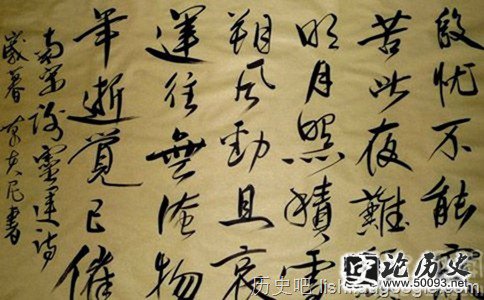 殷忧不能寐
苦此夜難
明月照積雪
朔风勁且哀
運往無淹物
年逝覺已催
南宋謝靈運詩
歲暮
書
论历史
www.50093.net
历史吧